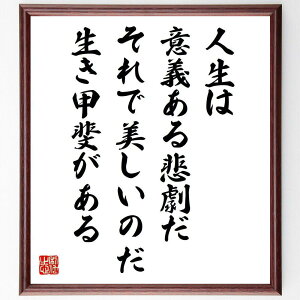 人生は
意義ある悲劇だ
それで美しいのだ
生き甲斐がある